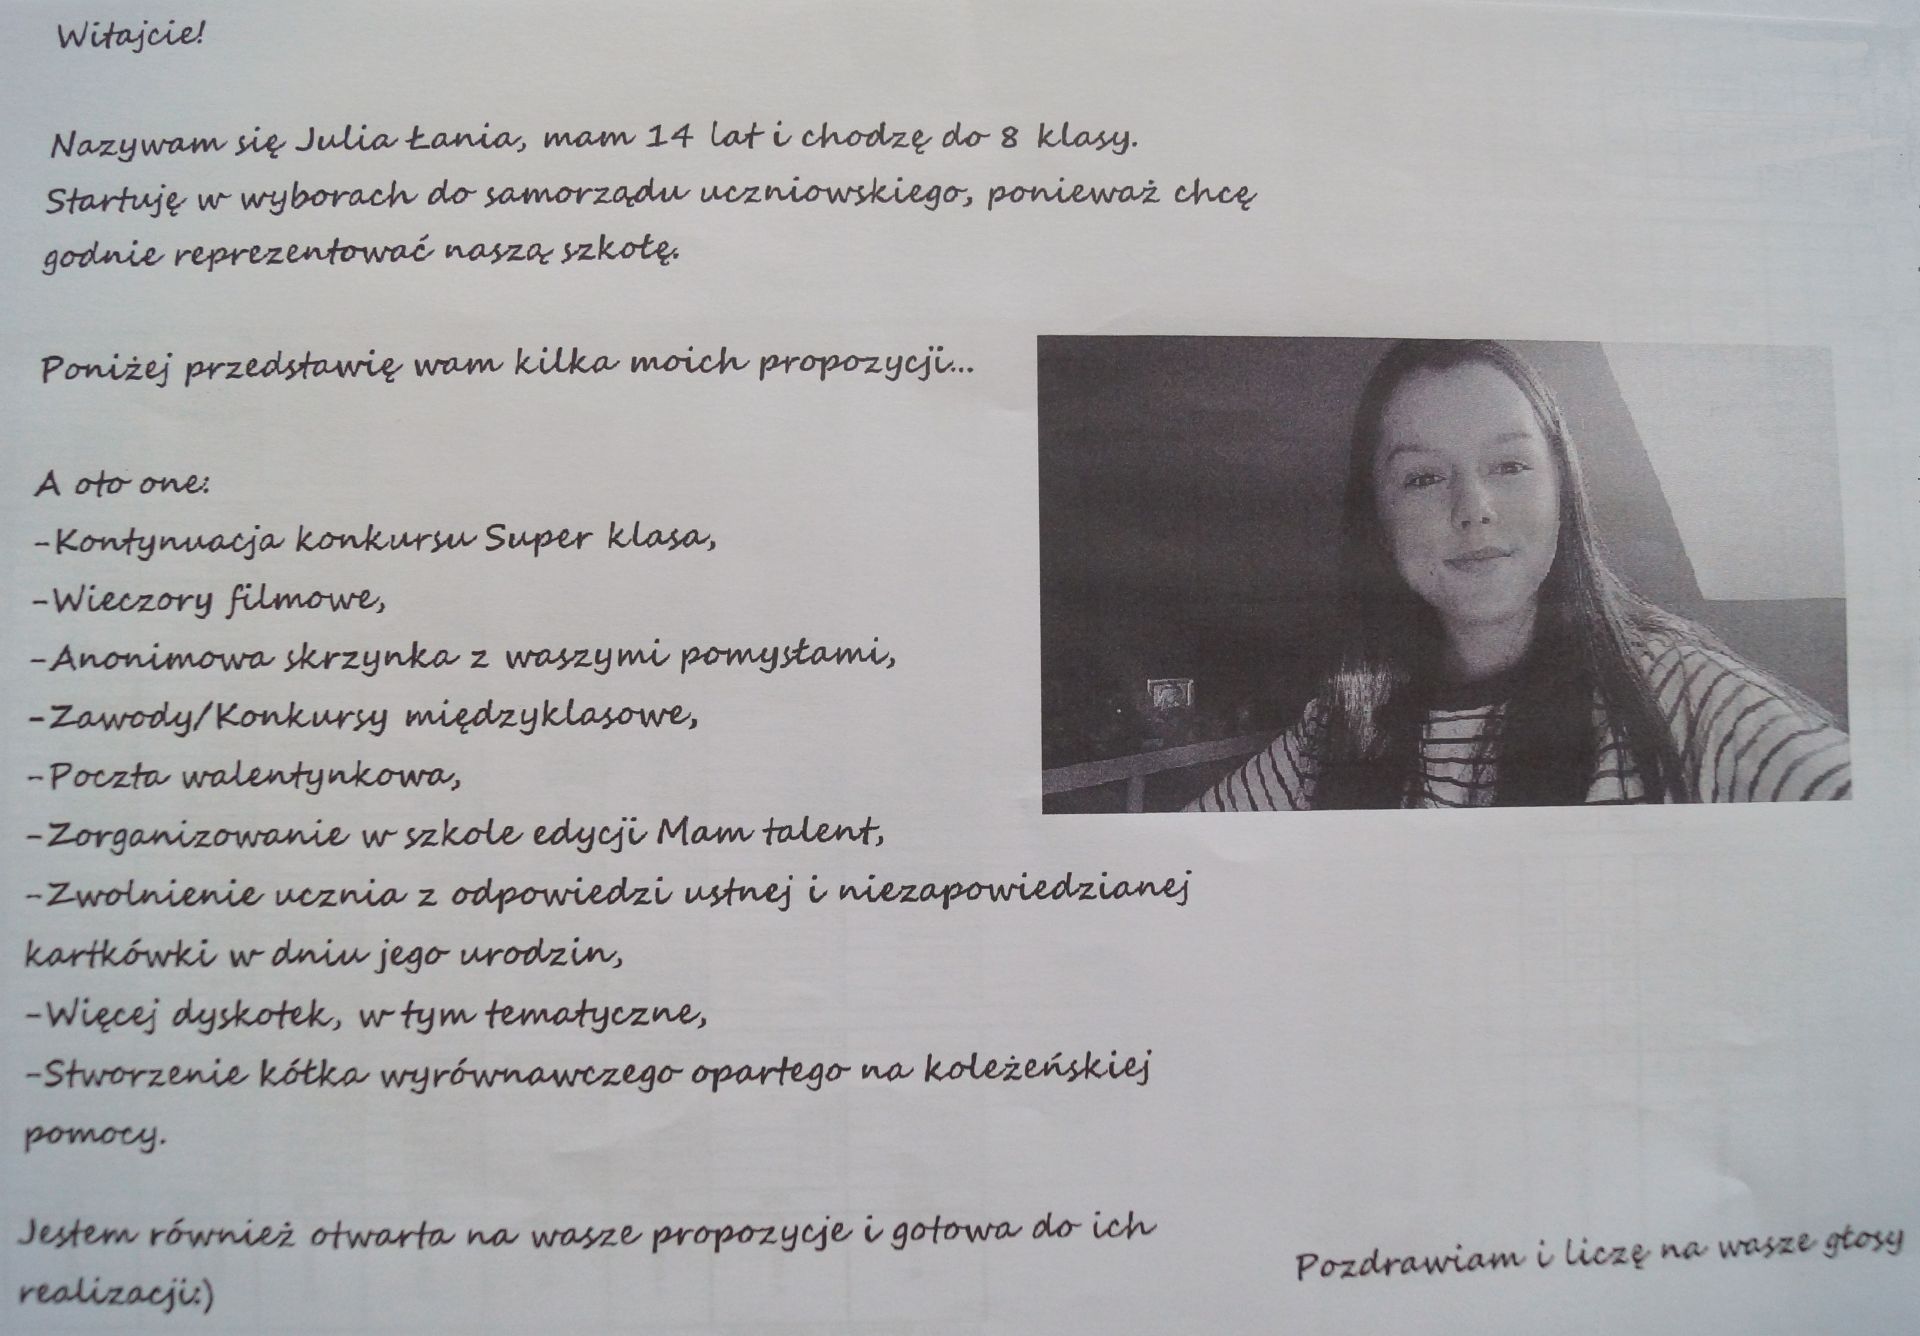 Witajcie!
Nazywam się Julia Łania, mam 14 lat i chodzę do 8 klasy.
Startuję w wyborach do samorządu uczniowskiego, ponieważ chcę
godnie reprezentować naszą szkołę.
Poniżej przedstawię wam kilka moich propozycji...
A oto one:
-Kontynuacja konkursu Super klasa,
-Wieczory filmowe,
-Anonimowa skrzynka z waszymi pomysłami,
-Zawody/Konkursy międzyklasowe,
-Poczta walentynkowa,
-Zorganizowanie w szkole edycji Mam talent,
-Zwolnienie ucznia z odpowiedzi ustnej i niezapowiedzianej
kartkówki w dniu jego urodzin,
-Więcej dyskotek, w tym tematyczne,
-Stworzenie kółka wyrównawczego opartego na koleżeńskiej
pomocy.
Jestem również otwarta na wasze propozycje i gotowa do ich
realizacji:)
Pozdrawiam i liczę na wasze głosy